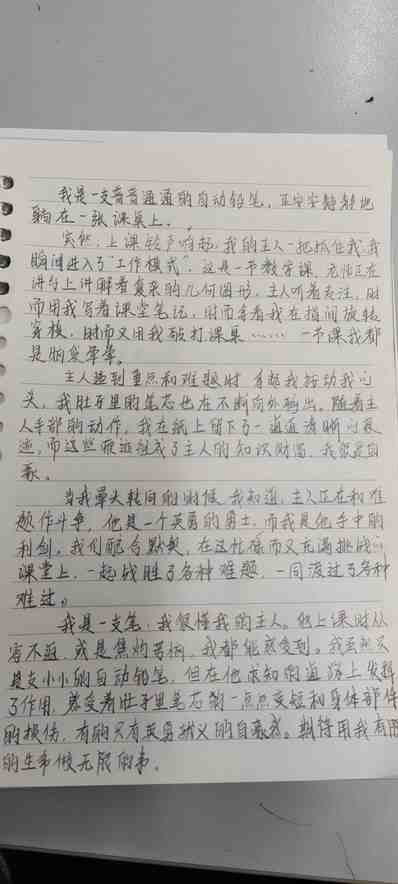 我是一支普普通通的自动铅笔，正安安静静地
躺在一张课桌上。
突然，上课铃声响起，我的主人一把抓住我，我
瞬间进入了“工作模式”。这是一节数学课，老师正在
讲台上讲解着复杂的几何图形，主人听着专注，时
而用我写着课堂笔记，时而拿着我在指间旋转
穿梭，时而又用我敲打课桌……一节课我都
是
主人遇到重点和难题时，
头，我肚子里的笔芯也在不断向外 出。随着主
人手部的动作，我在纸上留下了一道道清晰的痕
迹，而这些痕迹组成了主人的知识财富，我
豪。
当我晕头转向的时候，我知道，主人正在和难
题作斗争，他是一个英勇的勇士，而我是他手中的
利剑。我们配合默契，在这忙碌而又充满挑战的
课堂上，一起战胜了各种难题，一同渡过了各种
难过。
我是一支笔，我很懂我的主人。他上课时从
容不迫，或是焦灼苦恼，我都能感受到。我虽然只
是支小小的自动铅笔，但在他求知的道路上发挥
了作用，感受着肚子里笔芯的一点点变短和身体部件
的损伤，有的只有英勇就义的自豪感。期待用我有限
的生命做无限的事。